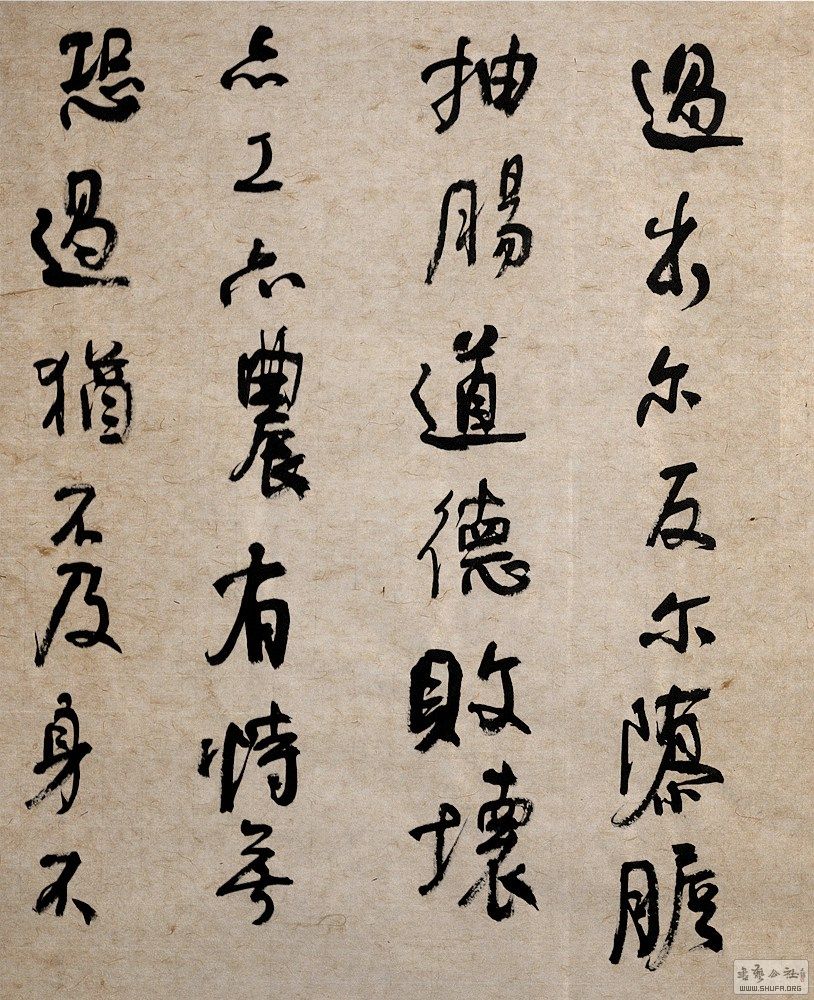 過出尔反尔隳膽
抽腸道德敗壞
亦工亦農有恃無
恐過猶不及身不
書藝公社
WWW.SHUFA.ORG